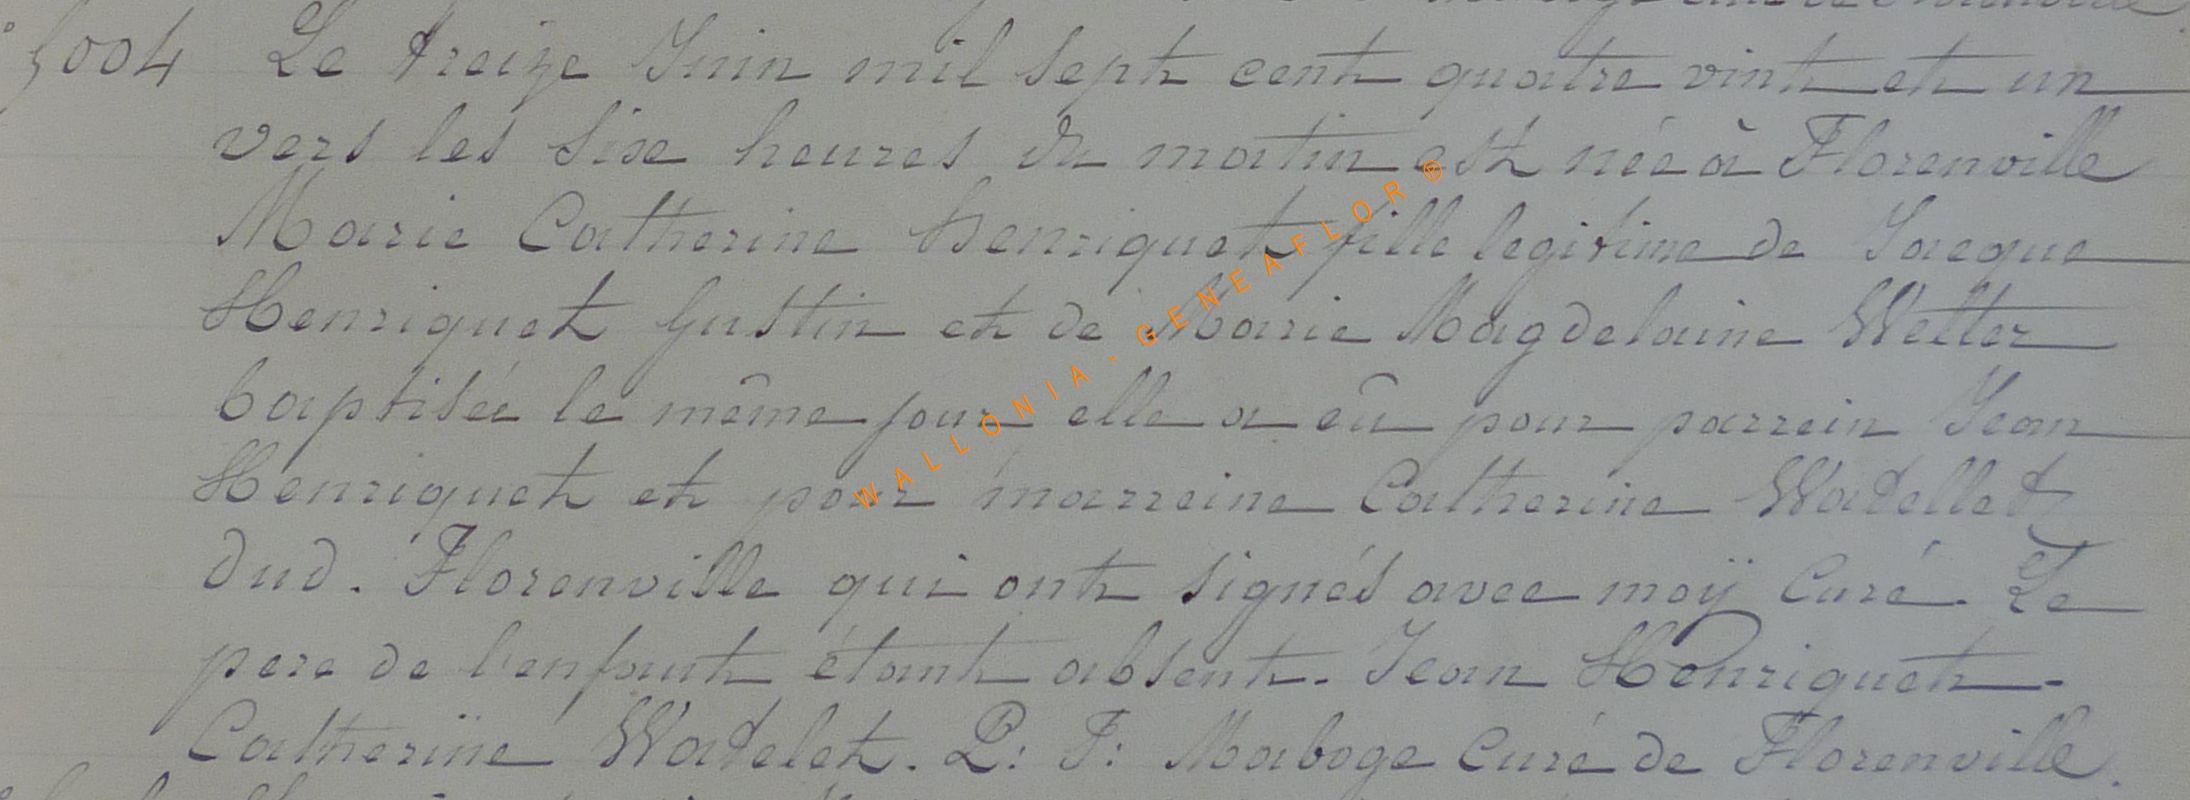 5004 Le treize Juin mil sept cent quatre vint et un
vers les sixe heures du matin est née à Florenville
Marie Catherine henriquet fille legitime de Jacque
Henriquet Gustin et de Marie Magdelaine Wetter
baptisée le même jour elle a eû pour parrein Jean
Henriquet et pour marreine Catherine Watellet
dud. Florenville qui ont signés avec moÿ Curé. Le
pere de l'enfant étant absent. Jean Henriquet.
Catherine Watelet. P: J: Maboge Curé de Florenville.
WALLONIA - GENEAFLOR ®